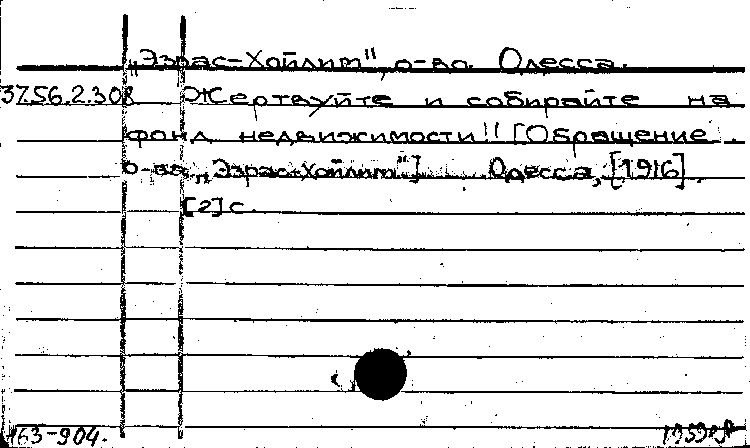 „Эзрас-Хойлим", о-во. Одесса.
37.56.2.308 Жертвуйте и собирайте на
фонд недвижимости!! [Обращение
о-ва „Эзрас-Хойлим"] Одесса, [1916].
[2] с.
163-904.